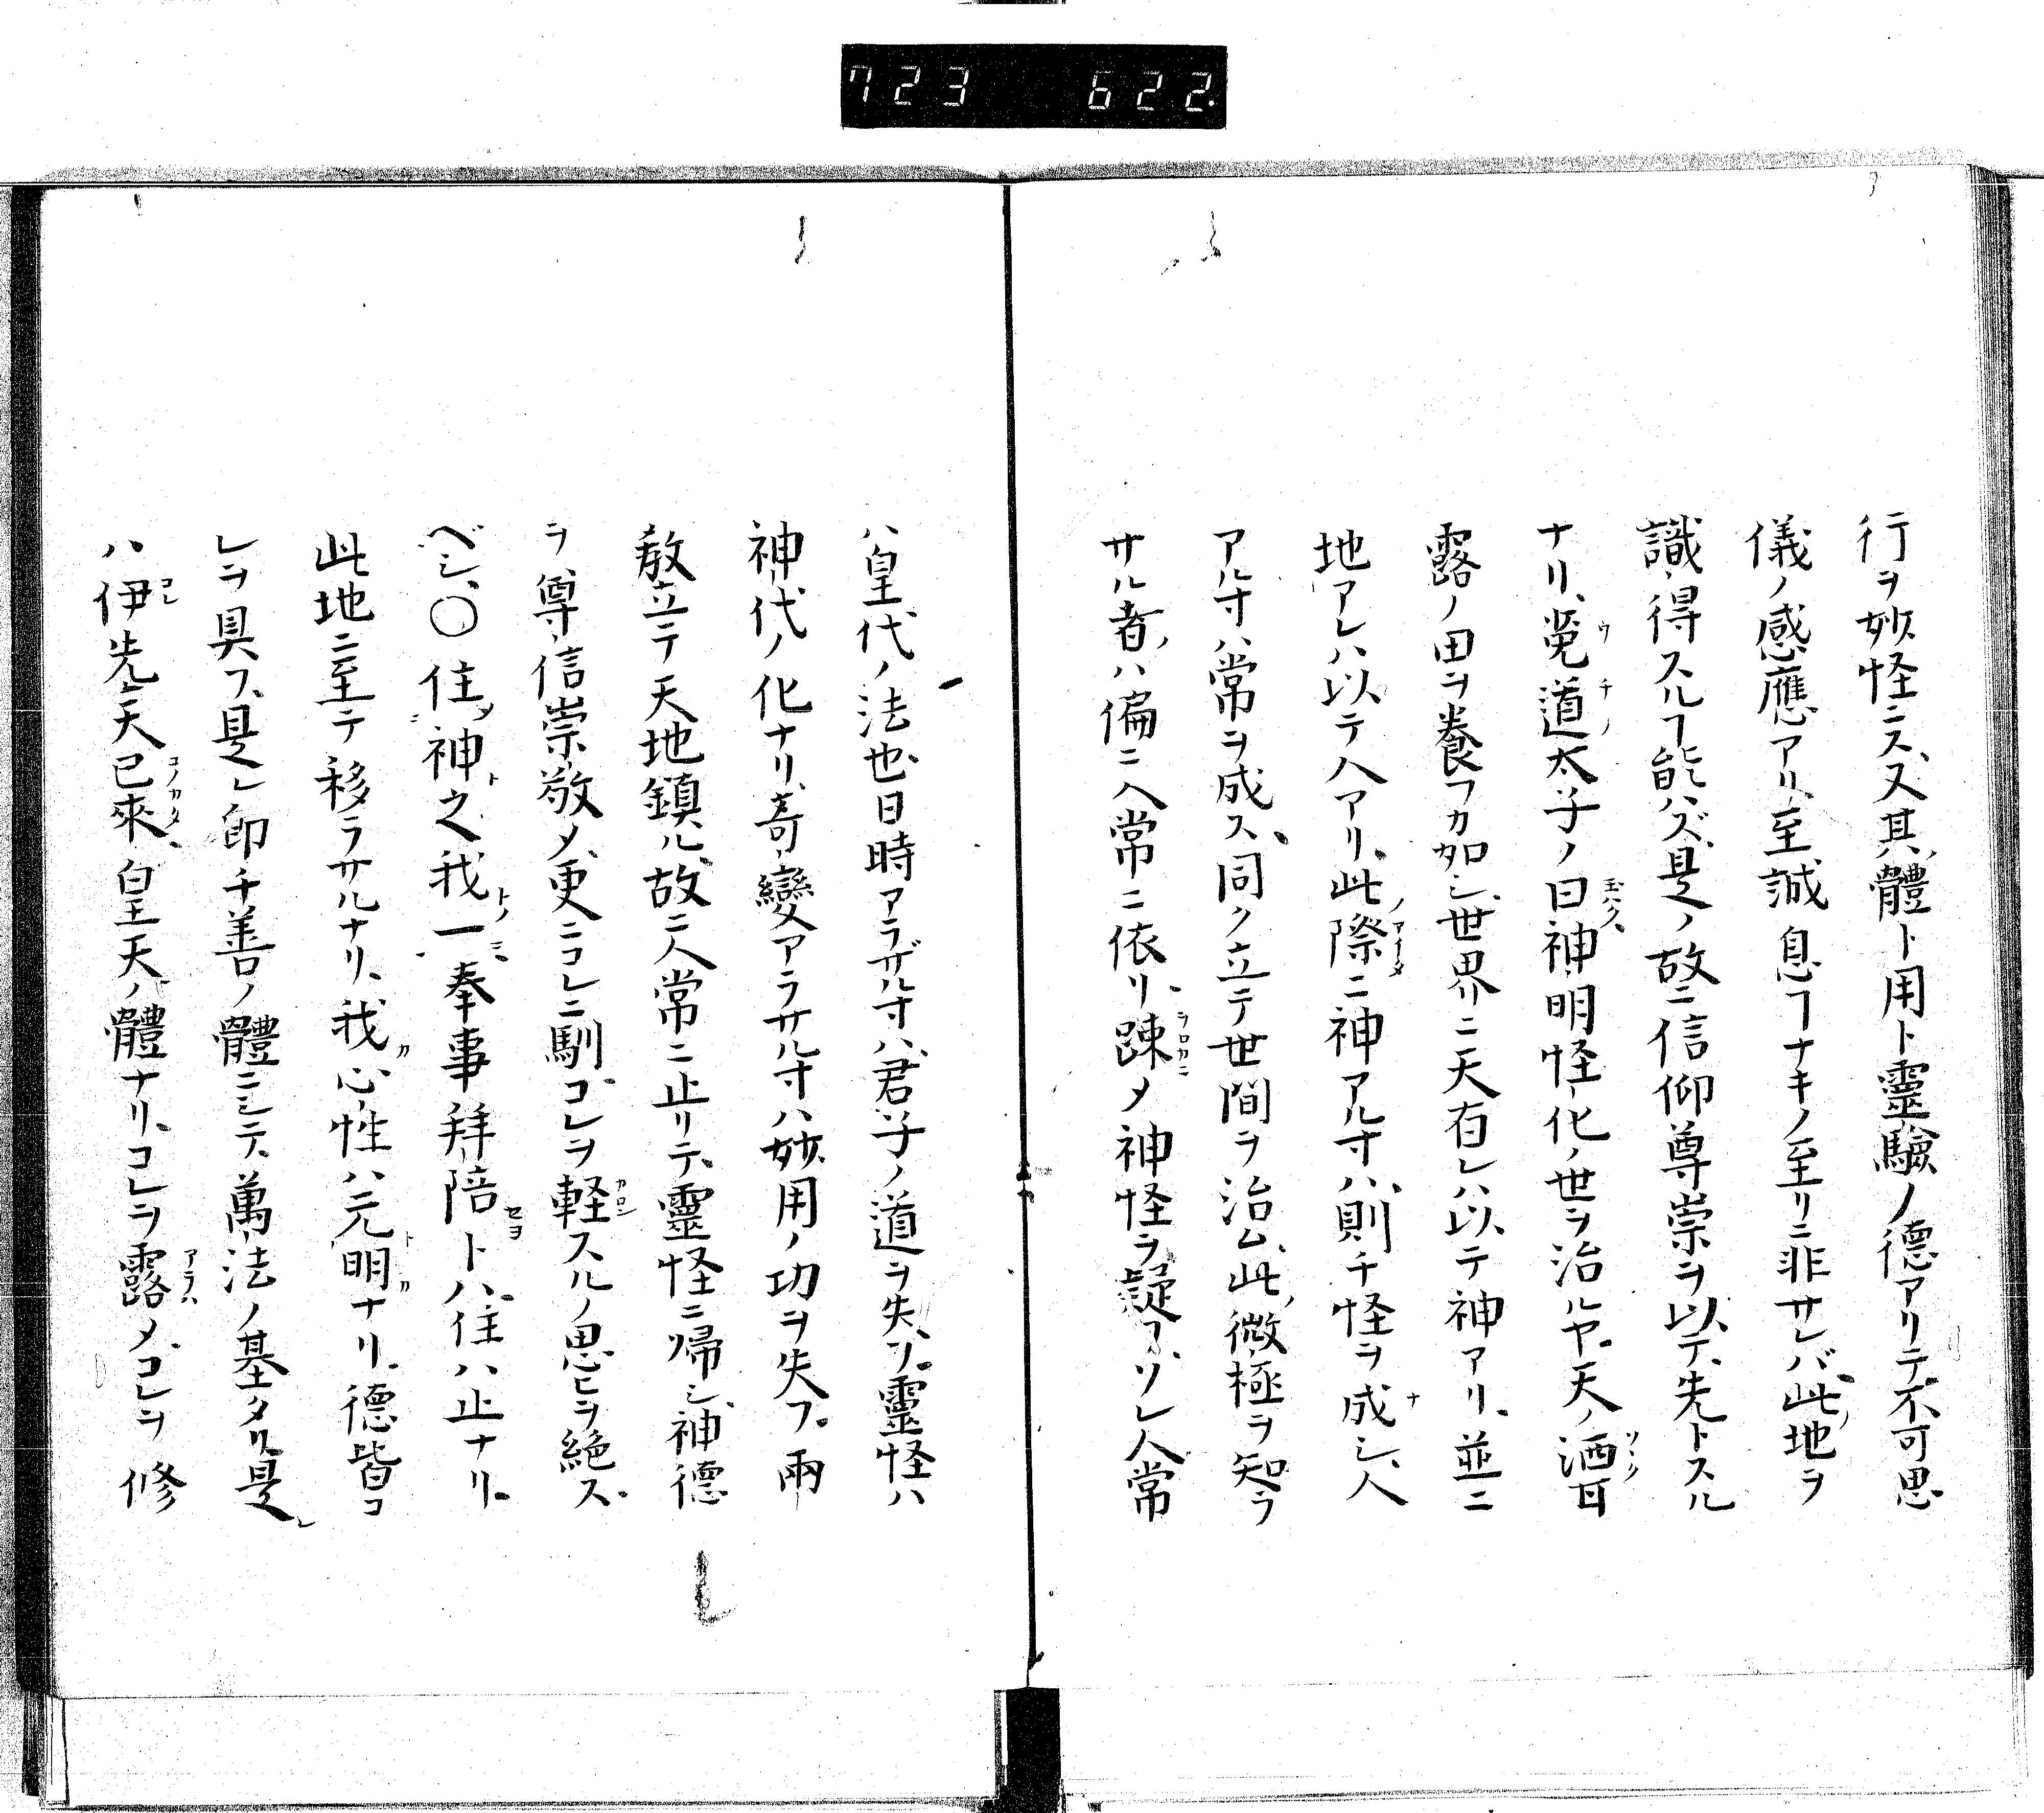 723 622.
行ヲ妙怪ニス、又其體ト用ト靈驗ノ德アリテ不可思
儀ノ感應アリ、至誠息ヿナキノ至リニ非サレバ此ノ地ヲ
識得スルヿ能ハズ、是ノ故ニ信仰尊崇ヲ以テ先トスル
ナリ、菟道太子ノ曰神明怪化ノ世ヲ治ルヤ、天ノ洒甘
露ノ田ヲ養フカ如シ、世界ニ天有レハ以テ神アリ、並ニ
地アレハ以テ人アリ、此際ニ神アル寸ハ則チ怪ヲ成シ、人
アル寸ハ常ヲ成ス、同ク立テ世間ヲ治ム、此ノ微極ヲ知ラ
サル者ノハ偏ニ人常ニ依リ、踈メ神怪ヲ疑フ、ソレ人常
ハ皇代ノ法也、日時アラザル寸ハ君子ノ道ヲ失フ、靈怪ハ
神代ノ化ナリ、寄變アラサル寸ハ妙用ノ功ヲ失フ。兩
敎立テ天地鎮ル、故ニ人常ニ止リテ、靈怪ニ帰シ、神德
ヲ尊信崇敬メ、更ニコレニ馴、コレヲ軽スルノ思ヒヲ絶ス
ベシ、〇住神之我一奉事拜陪トハ、住ハ止ナリ。
此地ニ至テ移ラサルナリ、我心性ハ元明ナリ、德皆コ
レヲ具フ、是レ卽千善ノ體ニシテ、萬法ノ基タリ、是レ
ハ伊先天已來、皇天ノ體ナリ、コレヲ露メ、コレヲ修